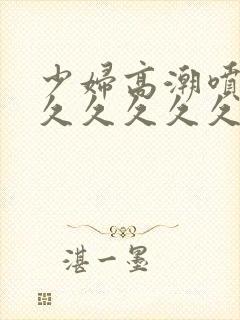 少婦高潮噴
久久久久久
湛一墨